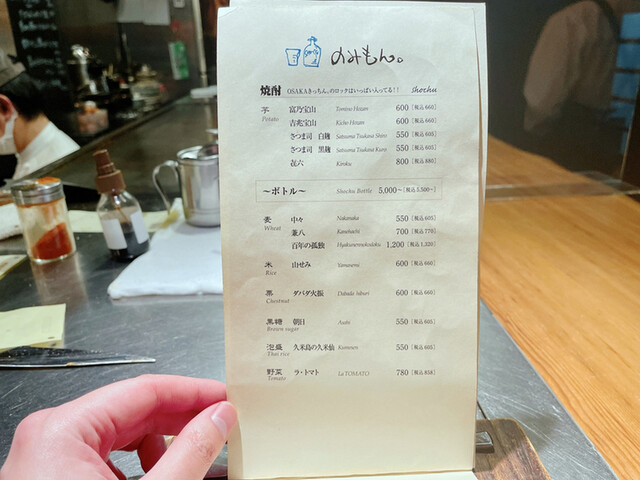 のみもん。
焼酎 OSAKAきっちん。のロックはいっぱい入ってる!! shochu
芋 富乃宝山 Tomino Hozan 600 [税込660]
Potato 吉兆宝山 Kicho Hozan 600 [税込660]
さつま司 白麹 Satsuma Tsukasa Shiro 550 [税込605]
さつま司 黒麹 Satsuma Tsukasa Kuro 550 [税込605]
㐂六 Kiroku 800 [税込880]
～ボトル～ Shochu Bottle 5,000～ [税込5,500～]
麦 中々 Nakanaka 550 [税込605]
Wheat 兼八 Kanehachi 700 [税込770]
百年の孤独 Hyakunennokodoku 1,200 [税込1,320]
米 山せみ Yamasemi 600 [税込660]
Rice
栗 ダバダ火振 Dabada hiburi 600 [税込660]
Chestnut
黒糖 朝日 Asahi 550 [税込605]
Brown sugar
泡盛 久米島の久米仙 Kumesen 550 [税込605]
Thai rice
野菜 ラ・トマト La TOMATO 780 [税込858]
Tomato